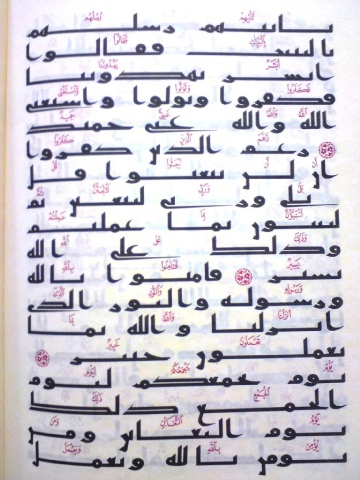 تاتيهم رسلهم
بالبينت فقالوا
ابشر يهدوننا
فكفروا وتولوا واستغنى
الله والله غنى حميد
زعم الذين كفروا
ان لن يبعثوا قل
بلى وربى لتبعثن ثم
لتنبون بما عملتم
وذلك على الله
يسير فامنوا بالله
ورسوله والنور الذى
انزلنا والله بما
تعملون خبير
يوم يجمعكم ليوم
الجمع ذلك
يوم التغابن ومن
يومن بالله ويعمل